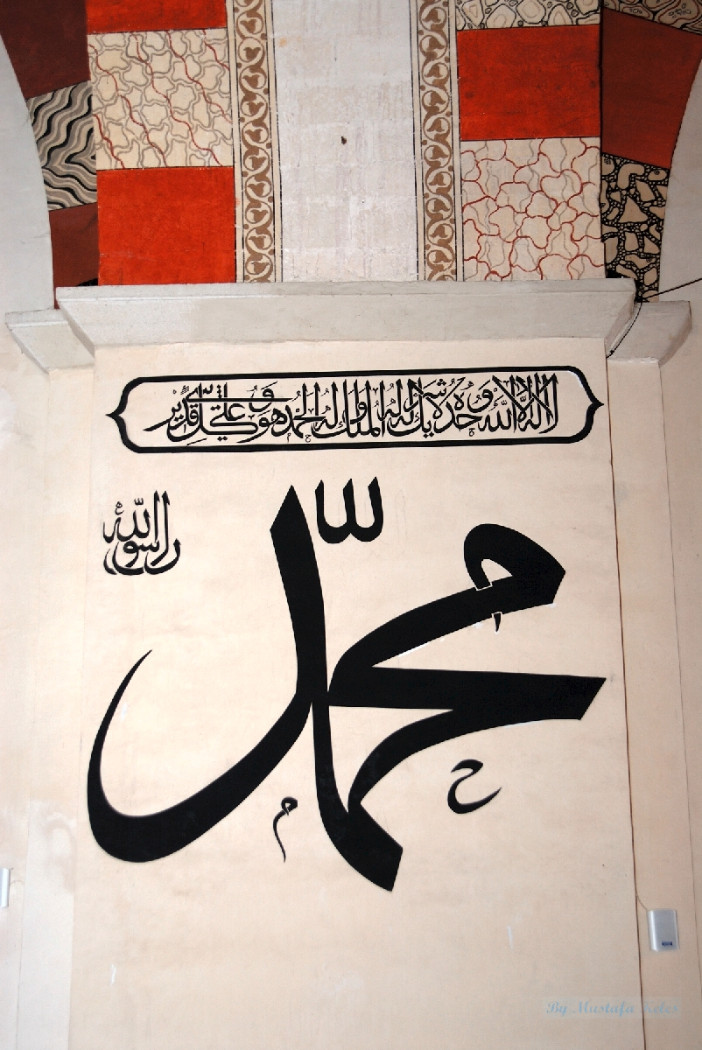 لا اله الا الله وحده لا شريك له له الملك وله الحمد وهو على كل شئ قدير
محمد
رسول الله
ح
م
By Mustafa Keleş